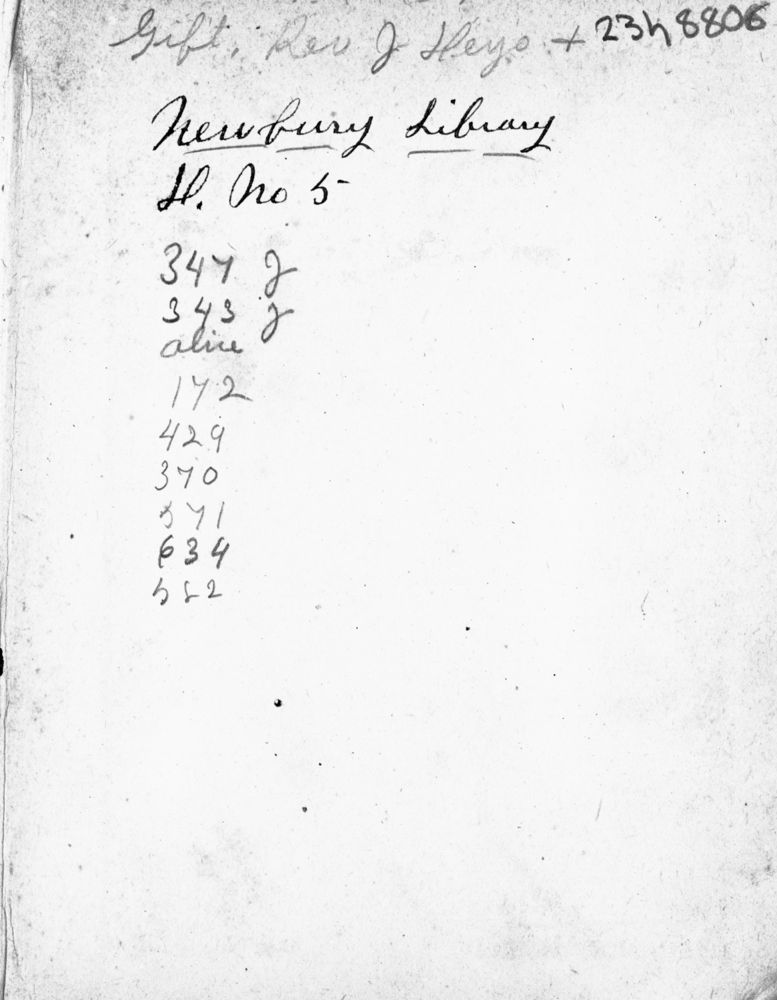 Gift, Rev J Heyo + 23h8806
Newbury Library
H. No 5
347 J
343 J
alice
172
429
370
571
634
552